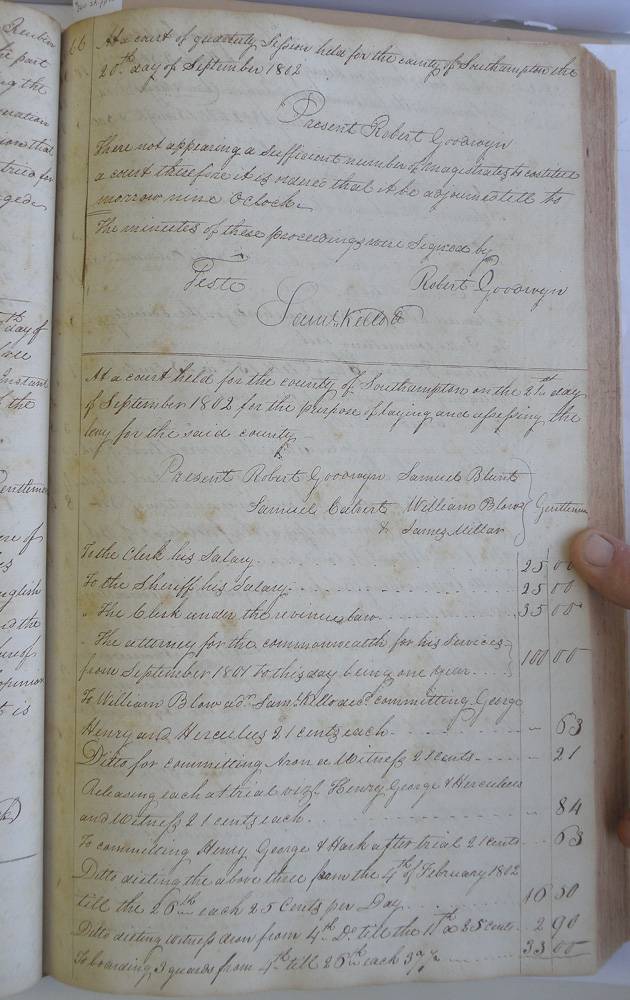 66
At a court of quarterly Session held for the county of Southampton the
20th day of September 1802
Present Robert Goodwyn
There not appearing a sufficient number of magistrates to constitute
a court therefore it is ordered that it be adjourned till to
morrow nine Oclock
The minutes of these proceedings were Signed by
Teste
Robert Goodwyn
Saml. Kello
At a court held for the county of Southampton on the 21st day
of September 1802 for the purpose of laying and assessing the
levy for the said county
Present Robert Goodwyn Samuel Blunt
Samuel Calvert William Blow Gentlemen
& James Millar
To the Clerk his Salary 25 00
To the Sheriff his Salary 25 00
The Clerk under the revenue law 35 00
The attorney for the commonwealth for his services
from September 1801 to this day being one year 100 00
To William Blow adr. Saml. Kello decd. committing George
Henry and Hercules 21 cents each - 63
Ditto for committing Aron a Witness 21 cents - 21
Releasing each at trial viz. Henry George & Hercules
and Witness 21 cents each - 84
To committing Henry George & Hark after trial 21 cents - 63
Ditto dieting the above three from the 4th of February 1802
till the 26th each 25 Cents per Day 16 50
Ditto dieting witness Aron from 4th Do. till the 11th 25 cents 2 00
To boarding 3 guards from 4th till 26th each 33 00